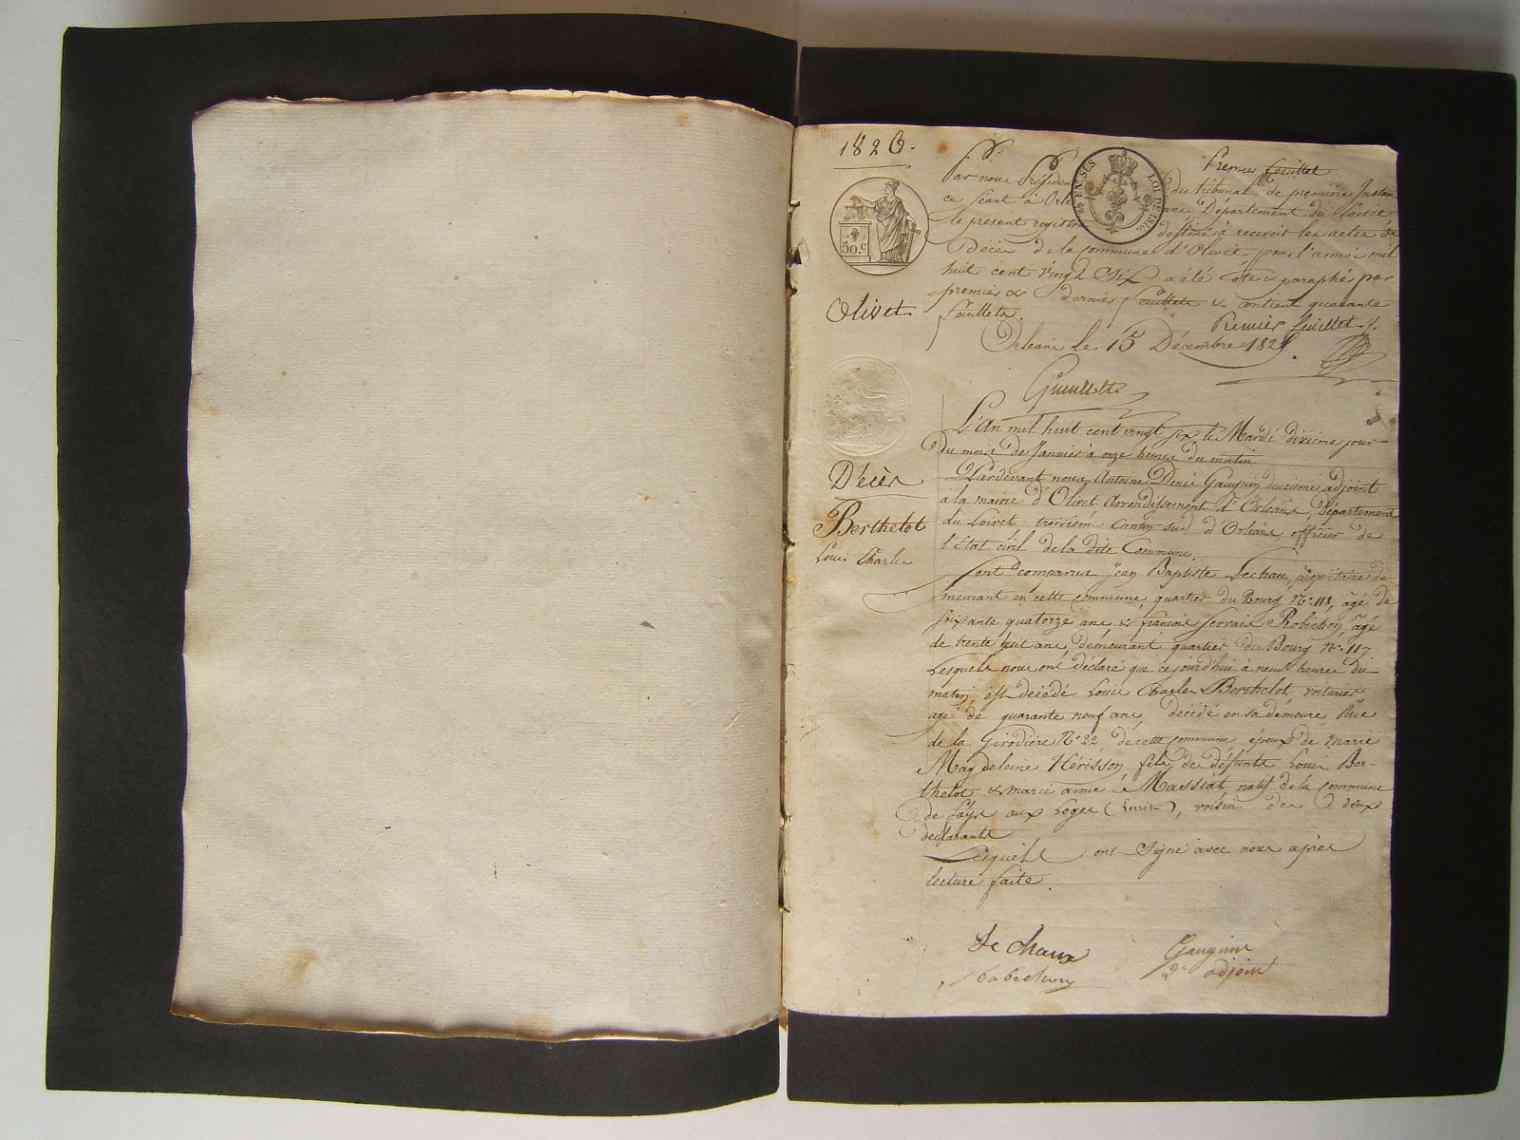 1826.
Premier feuillet
Par nous Président du tribunal de première Instan
ce séant à Orl Département du Loiret
le présent registre destiné à recevoir les actes de
Décès de la commune d'Olivet pour l'année mil
huit cent vingt Six a été coté & paraphé par
premier & dernier feuillets & contient quarante
feuillets.
Premier feuillet
Orléans le 15 Décembre 182
50.C
LOI DE 1816.
Olivet
L'An mil huit cent vingt six le Mardi dixième jour
du mois de Janvier à onze heures du matin
Pardevant nous Antoine Denis Gauguin deuxième adjoint
a la mairie d'Olivet Arrondissement d'Orléans, Département
du Loiret troisième Canton sud d'Orléans officier de
l'état civil de la dite Commune.
Décès
Berthelot
Louis Charles
Sont comparus Jean Baptiste Lechaux, propriétaire de
meurant en cette commune, quartier du Bourg N° 118, âgé de
soixante quatorze ans & françois Robichon, âgé
de trente huit ans, demeurant quartier du Bourg N° 117
Lesquels nous ont déclaré que cejourd'hui à neuf heures du
matin, est décédé Louis Charles Berthelot, voiturier
age de quarante neuf ans, décédé en sa demeure Rue
de la Girodière N° 22 de cette commune, époux de Marie
Magdeleine Hérisson, fils de défunts Louis Ber-
thelot & marie anne Massiat, natif de la commune
de fays aux Loges (Loiret), voisin des deux
déclarants
Lesquels ont Signé avec nous après
lecture faite.
Lechaux
Gauguin
2e adjoint